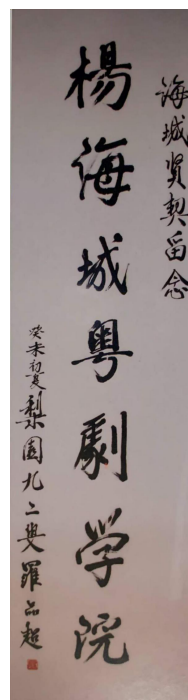 海城贤契留念
楊海城粤劇学院
癸未初夏梨園九二叟羅品超